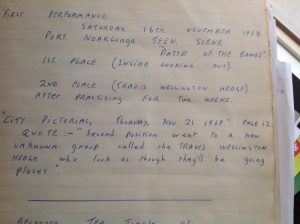 FIRST PERFORMANCE.
SATURDAY 16TH NOVEMBER 1968
PORT NOARLUNGA TEEN SCENE
"BATTLE OF THE BANDS".
1ST PLACE (INSIDE LOOKING OUT)
2ND PLACE (TRAVIS WELLINGTON HEDGE)
AFTER PRACTISING FOR TWO WEEKS.
"CITY PICTORIAL, THURSDAY, NOV. 21 1968" PAGE 12.
QUOTE :- "Second position went to a new
unknown group called the TRAVIS WELLINGTON
HEDGE who look as though they'll be going
places".